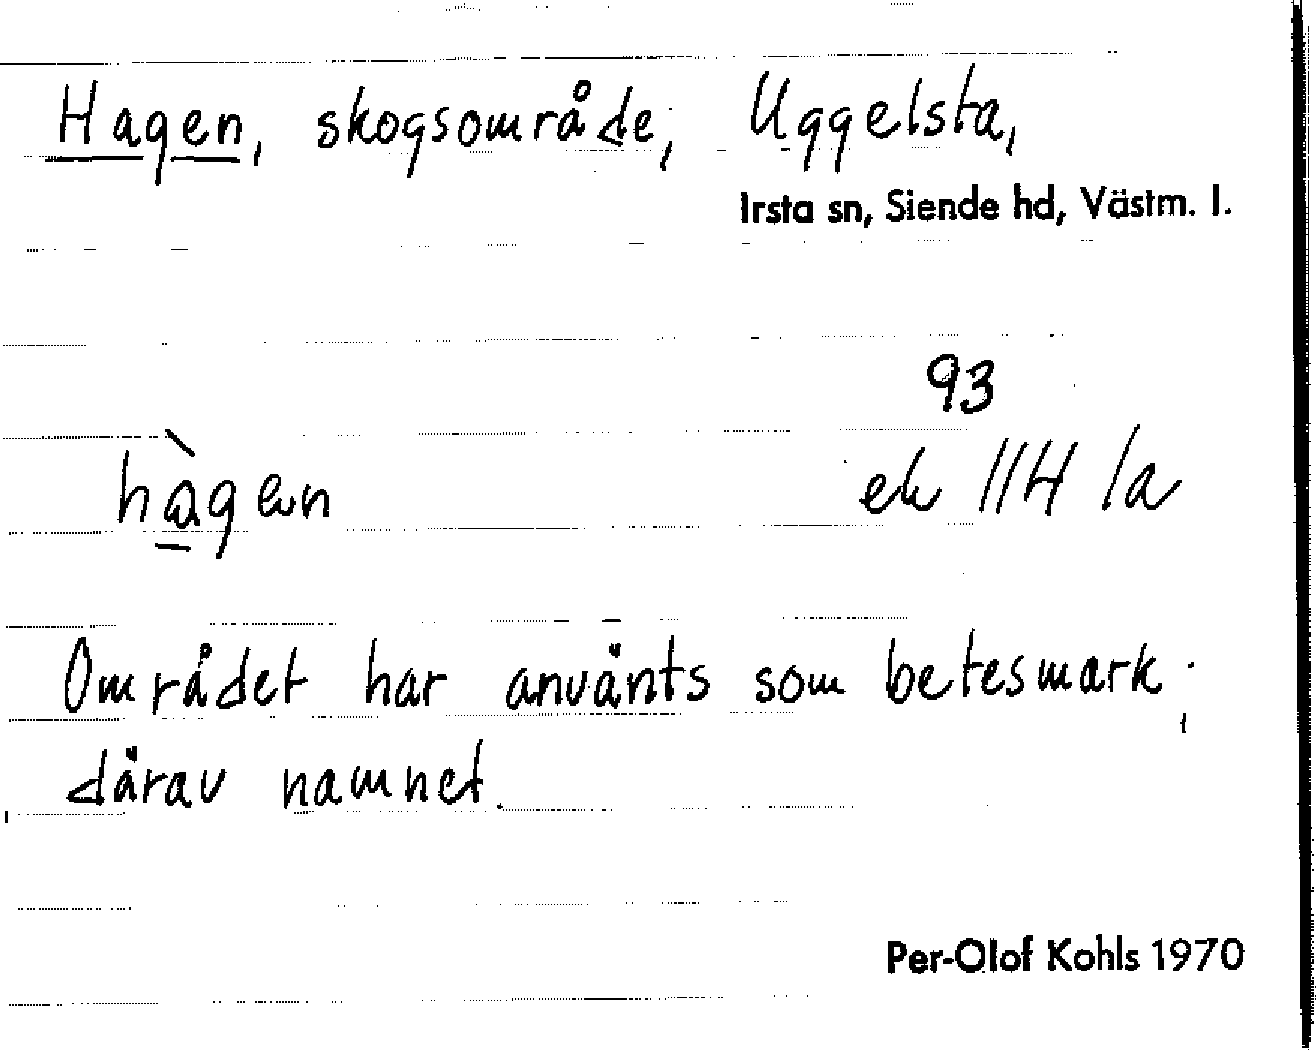 Hagen, skogsområde, Uggelsta,
Irsta sn, Siende hd, Västm. l.
93
hàgen ek 11H 1a
Området har använts som betesmark;
därav namnet.
Per-Olof Kohls 1970